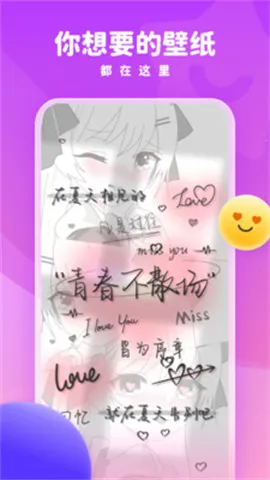 你想要的壁纸
都在这里
在夏天相见的
Love
miss you
"青春不散场"
I love You
Miss
皆为序章
love
回忆
就在夏天告别吧